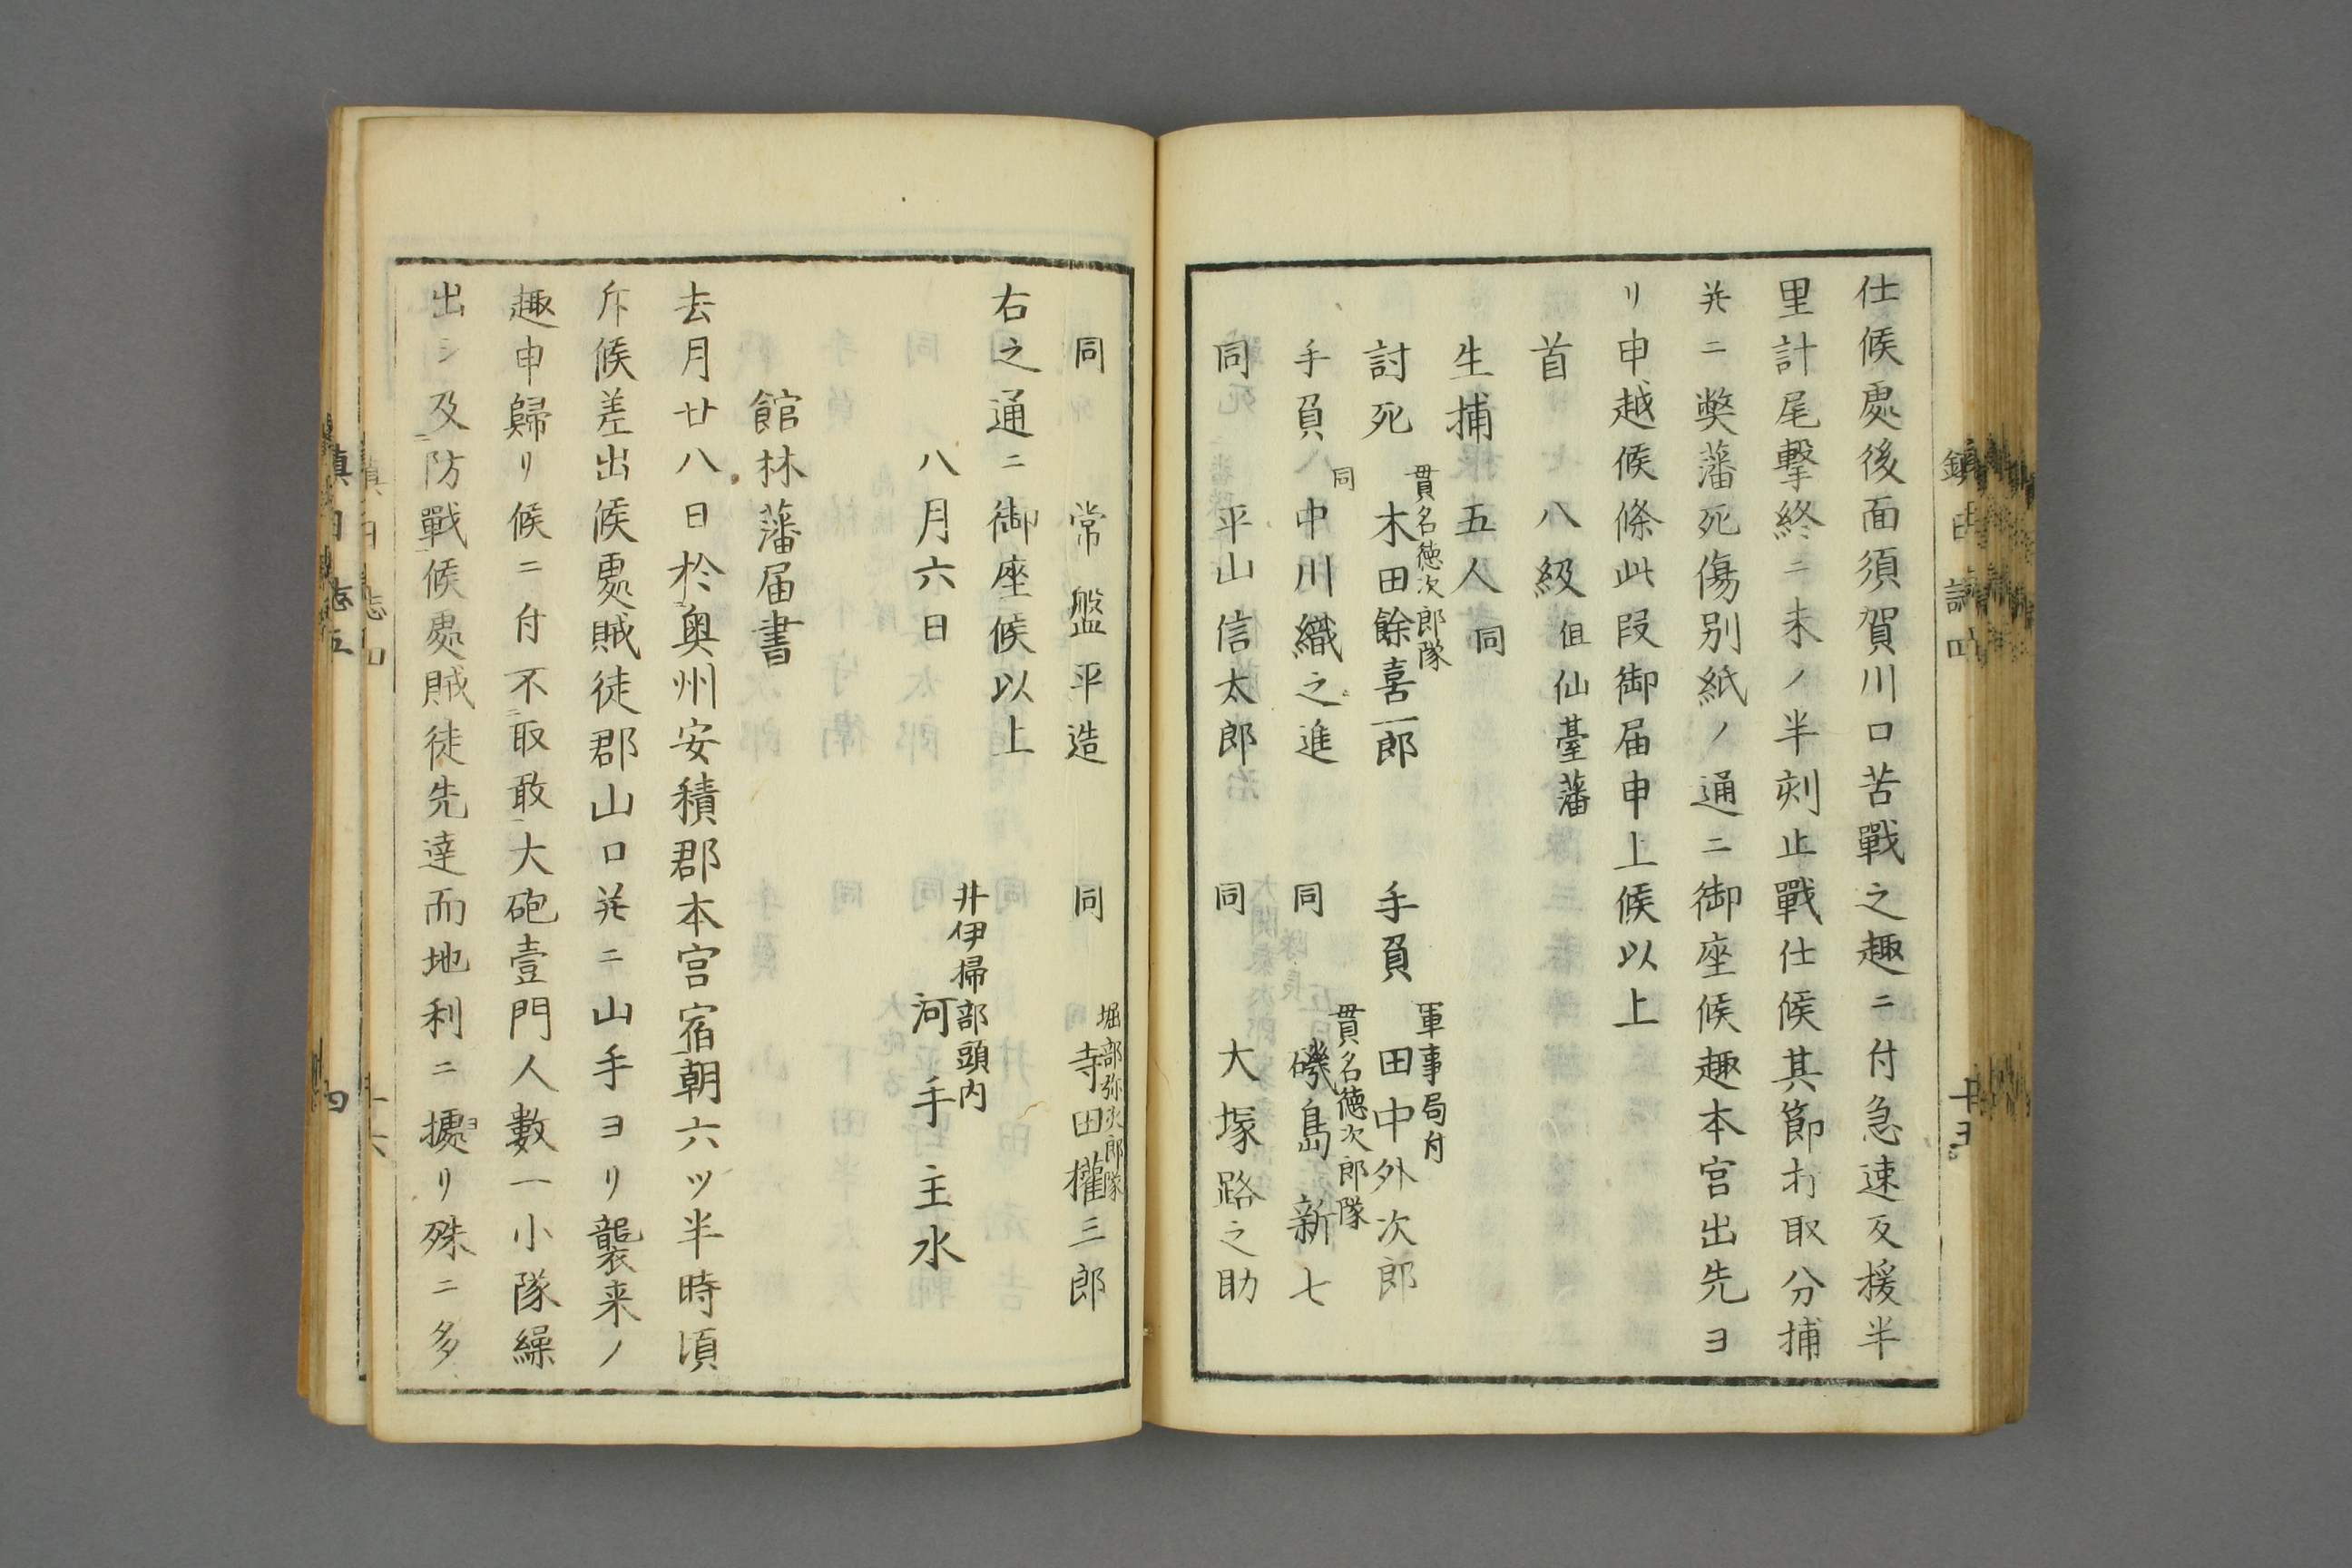 仕候處後面須賀川口苦戰之趣ニ付急速及援半
里計尾擊終ニ未ノ半刻止戰仕候其節打取分捕
并ニ弊藩死傷别紙ノ通ニ御座候趣本宮出先ヨ
リ申越候條此段御届申上候以上
首 八級 但仙臺藩
生捕 五人 同
討死 貫名徳次郎隊 木田餘喜一郎 手負 軍事局付 田中外次郎
手負 同 中川織之進 同 貫名徳次郎隊 磯島新七
同 平山信太郎 同 大塚路之助
同 常盤平造 同 堀部弥次郎隊 寺田權三郎
右之通ニ御座候以上
八月六日 井伊掃部頭内 河手主水
館林藩届書
去月廿八日於奥州安積郡本宮宿朝六ッ半時頃
斥候差出候處賊徒郡山口并ニ山手ヨリ襲来ノ
趣申歸リ候ニ付不取敢大砲壹門人數一小隊繰
出シ及防戰候處賊徒先達而地利ニ據リ殊ニ多